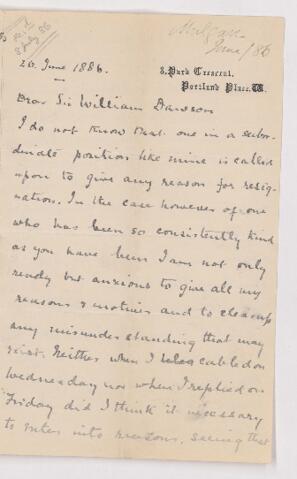 June/86
26 June 1886.
8, Park Crescent,
Portland Place. W.
Dear Sir William Dawson
I do not know that one in a subor-
dinate position like mine is called
upon to give any reason for resig-
nation. In the case however of one
who has been so consistently kind
as you have been I am not only
ready but anxious to give all my
reasons & motives and to clear up
any misunderstanding that may
exist. Neither when I cabled on
Wednesday nor when I replied on
Friday did I think it necessary
to enter into reasons, seeing that